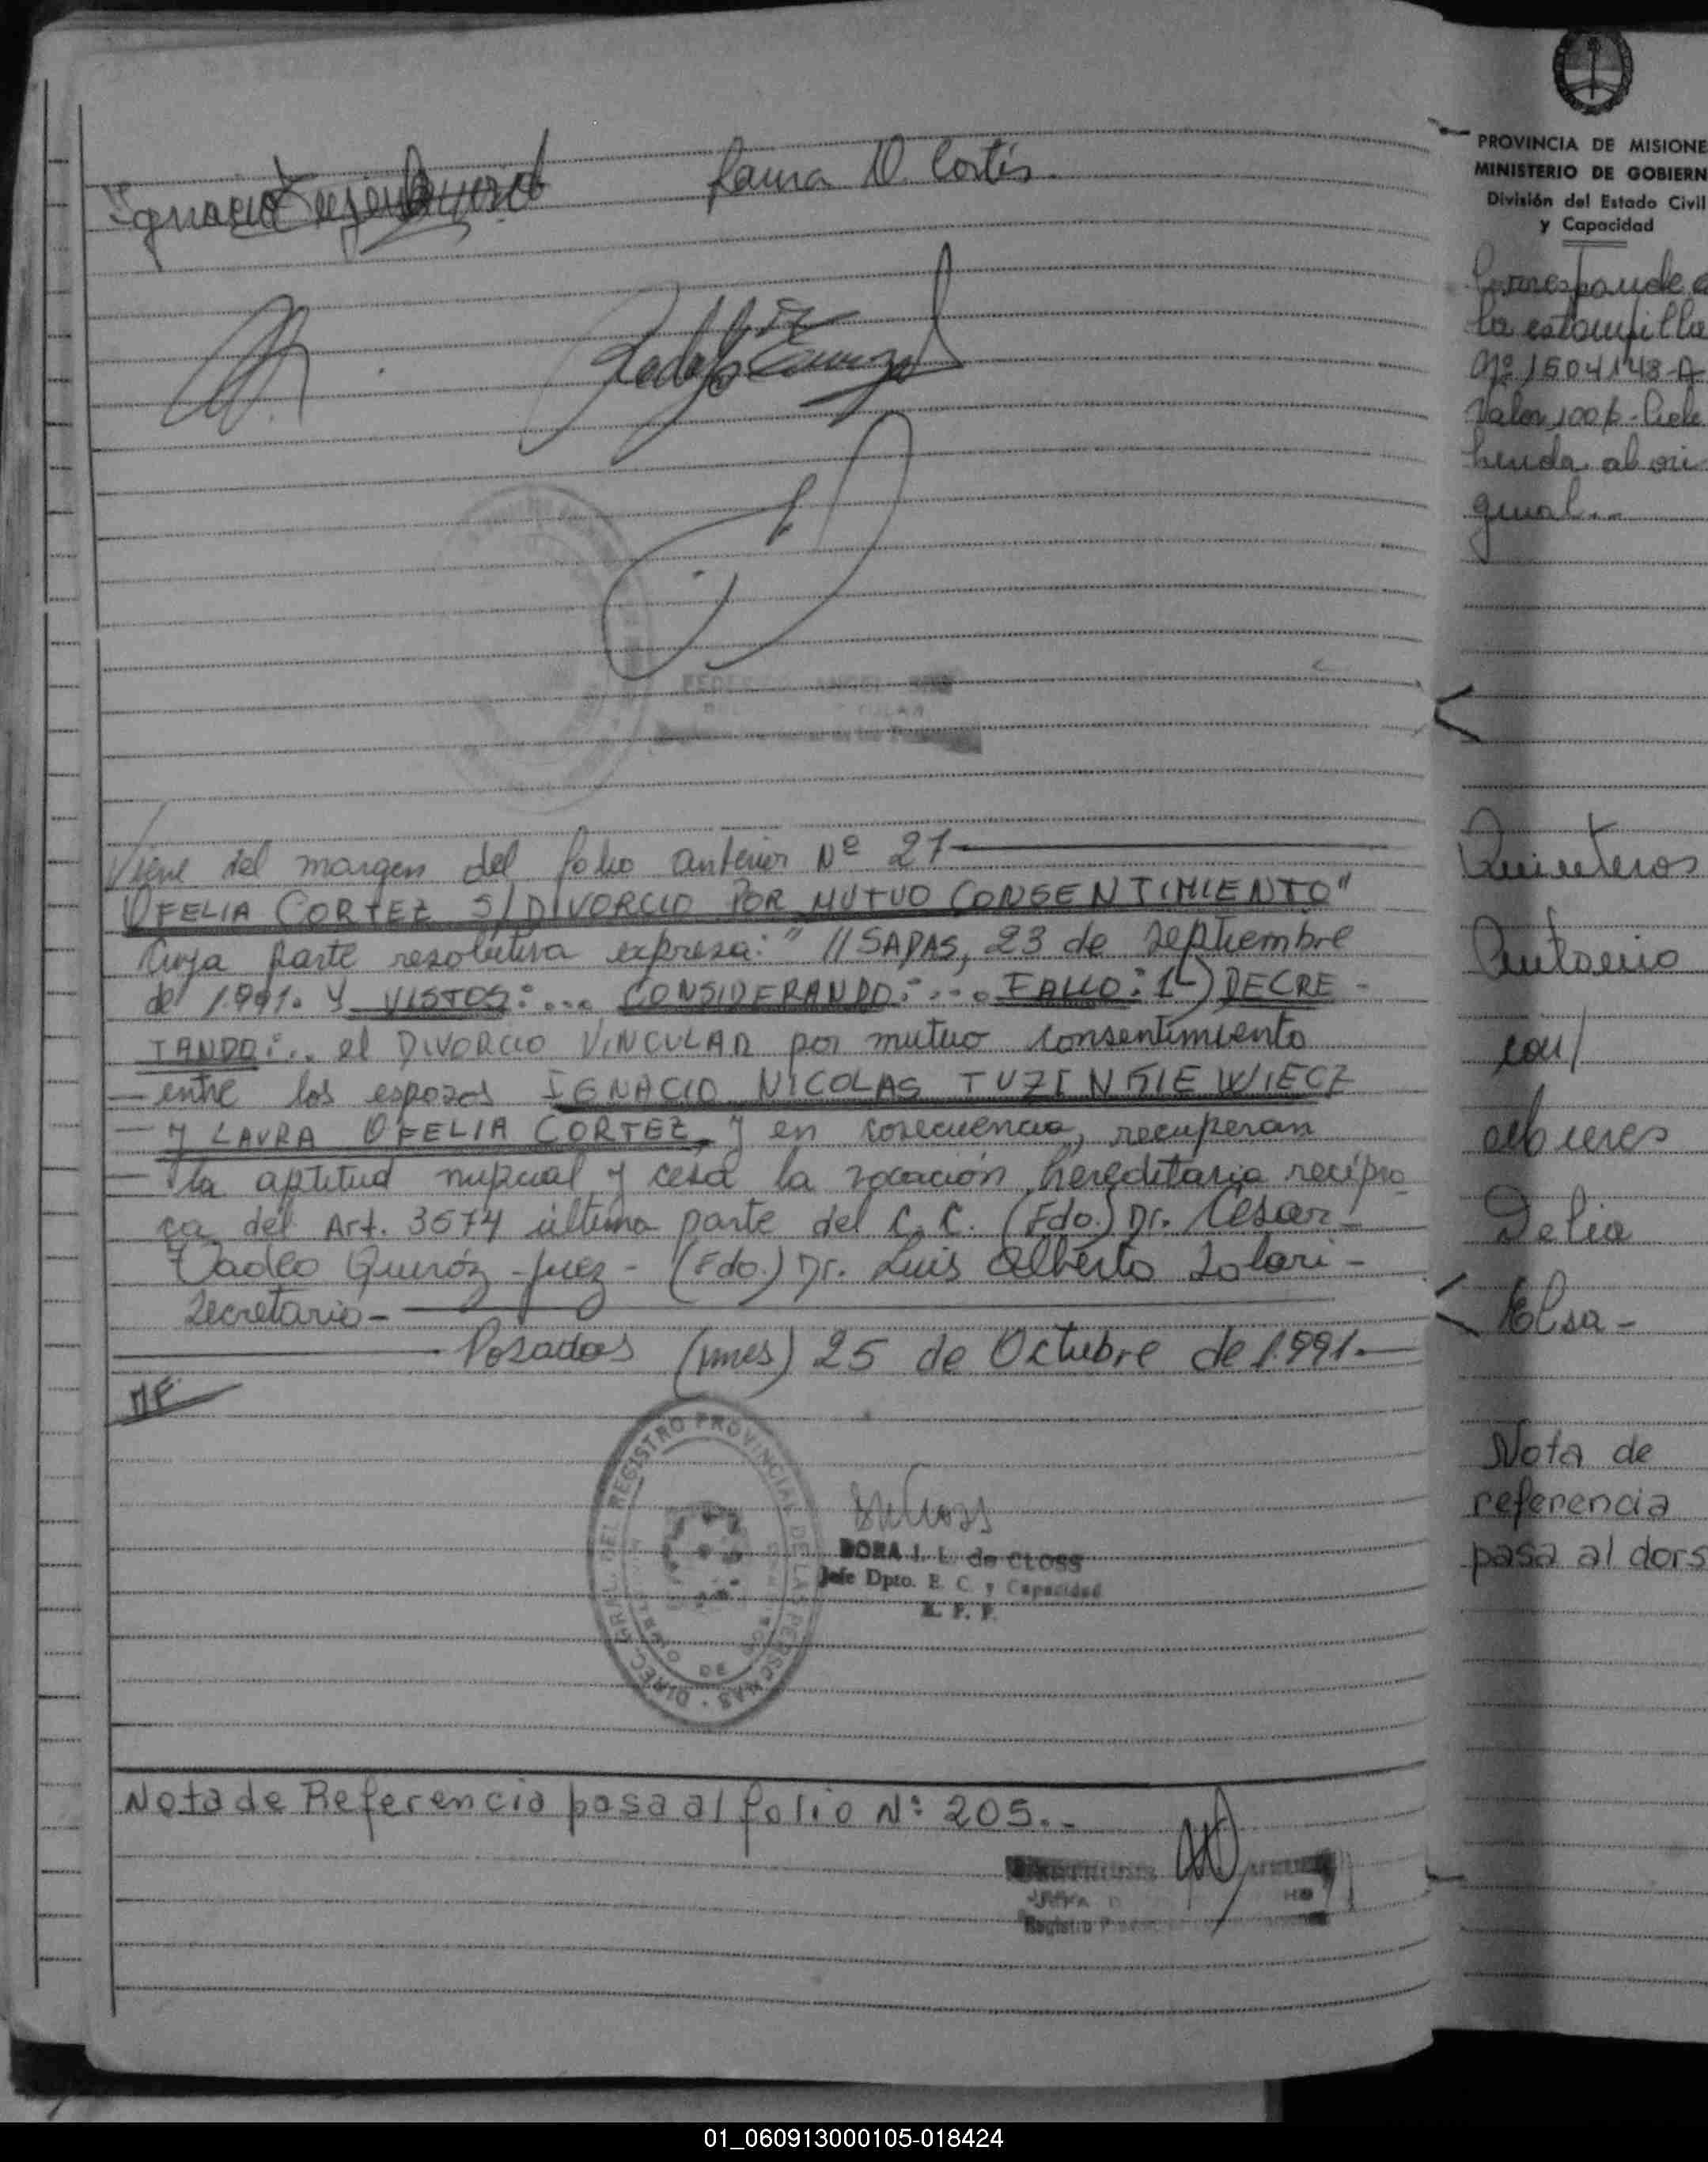 Ignacio
Laura O. Cortés
Viene del margen del folio anterior Nº 27
OFELIA CORTEZ S/DIVORCIO POR MUTUO CONSENTIMIENTO"
Cuya parte resolutiva expresa: "//SADAS, 23 de Septiembre
de 1.991. Y VISTOS:... CONSIDERANDO:... FALLO: 1-) DECRE-
TANDO:.. el DIVORCIO VINCULAR por mutuo consentimiento
entre los esposos IGNACIO NICOLAS TUZINKIEWIECZ
y LAURA OFELIA CORTEZ, y en cosecuencia, recuperan
la aptitud nupcial y cesa la vocación hereditaria recípro
ca del Art. 3574 última parte del C.C. (Fdo.) Dr. César
Tadeo Quiróz - Juez - (Fdo.) Dr. Luis Alberto Solari -
Secretario -
Posadas (mnes) 25 de Octubre de 1.991.-
MF
DIREC. GRAL. DEL REGISTRO PROVINCIAL DE LAS PERSONAS
DORA I. L. de CLOSS
Jefe Dpto. E. C. y Capacidad
R. P. P.
Nota de Referencia pasa al folio Nº: 205.-
PROVINCIA DE MISIONE
MINISTERIO DE GOBIERN
División del Estado Civil
y Capacidad
Corresponde a
la estampilla
Nº 1504143-A
Valor 100 p.
herida al ori
ginal..
Quinteros
Antonio
con/
Delia
Elsa -
Nota de
referencia
pasa al dors
01_060913000105-018424